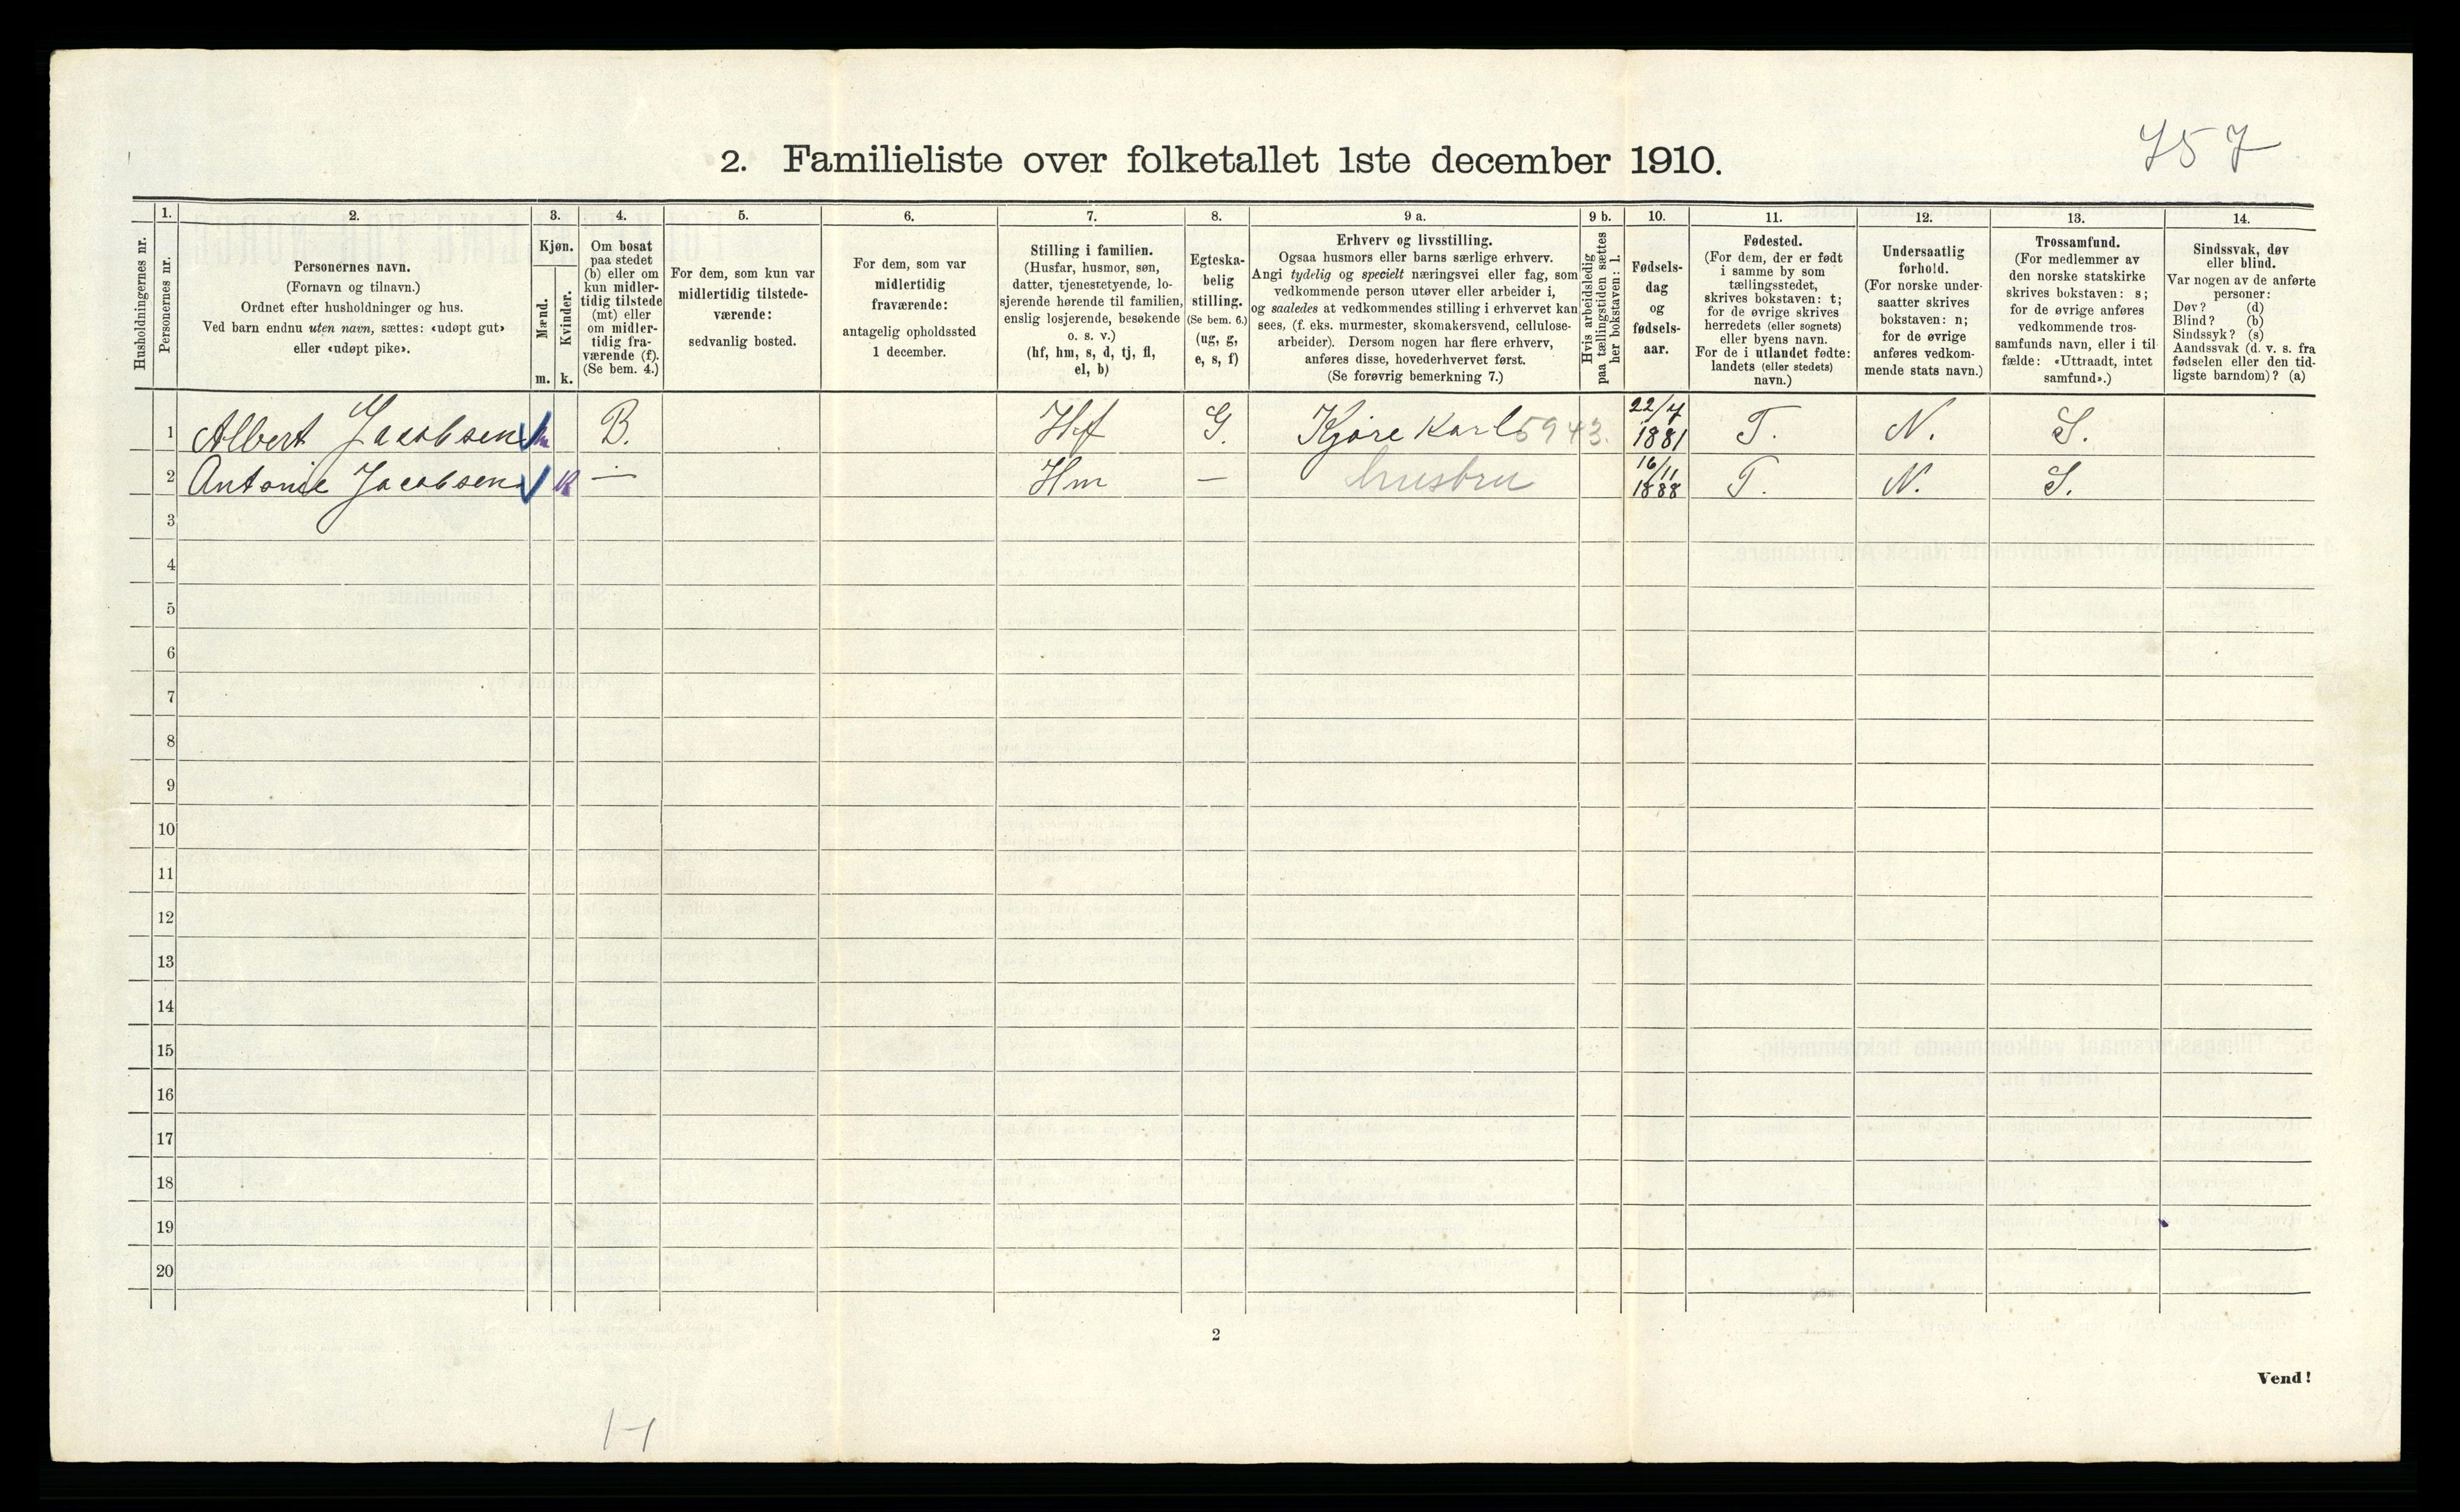 757
2. Familieliste over folketallet 1ste december 1910.
1. 2. 3. 4. 5. 6. 7. 8. 9 a. 9 b. 10. 11. 12. 13. 14.
Husholdningernes nr.
Personernes nr.
Personernes navn.
(Fornavn og tilnavn.)
Ordnet efter husholdninger og hus.
Ved barn endnu uten navn, sættes: «udøpt gut»
eller «udøpt pike».
Kjøn.
Mænd.
Kvinder.
m. k.
Om bosat
paa stedet
(b) eller om
kun midler-
tidig tilstede
(mt) eller
om midler-
tidig fra-
værende (f).
(Se bem. 4.)
For dem, som kun var
midlertidig tilstede-
værende:
sedvanlig bosted.
For dem, som var
midlertidig
fraværende:
antagelig opholdssted
1 december.
Stilling i familien.
(Husfar, husmor, søn,
datter, tjenestetyende, lo-
sjerende hørende til familien,
enslig losjerende, besøkende
o. s. v.)
(hf, hm, s, d, tj, fl,
el, b)
Egteska-
belig
stilling.
(Se bem. 6.)
(ug, g,
e, s, f)
Erhverv og livsstilling.
Ogsaa husmors eller barns særlige erhverv.
Angi tydelig og specielt næringsvei eller fag, som
vedkommende person utøver eller arbeider i,
og saaledes at vedkommendes stilling i erhvervet kan
sees, (f. eks. murmester, skomakersvend, cellulose-
arbeider). Dersom nogen har flere erhverv,
anføres disse, hovederhvervet først.
(Se forøvrig bemerkning 7.)
Hvis arbeidsledig
paa tællingstiden sættes
her bokstaven: l.
Fødsels-
dag
og
fødsels-
aar.
Fødested.
(For dem, der er født
i samme by som
tællingsstedet,
skrives bokstaven: t;
for de øvrige skrives
herredets (eller sognets)
eller byens navn.
For de i utlandet fødte:
landets (eller stedets)
navn.)
Undersaatlig
forhold.
(For norske under-
saatter skrives
bokstaven: n;
for de øvrige
anføres vedkom-
mende stats navn.)
Trossamfund.
(For medlemmer av
den norske statskirke
skrives bokstaven: s;
for de øvrige anføres
vedkommende tros-
samfunds navn, eller i til-
fælde: «Uttraadt, intet
samfund».)
Sindssvak, døv
eller blind.
Var nogen av de anførte
personer:
Døv? (d)
Blind? (b)
Sindssyk? (s)
Aandssvak (d. v. s. fra
fødselen eller den tid-
ligste barndom)? (a)
1 Albert Jacobsen m B. Hf G. Kjøre Karl 5943. 22/7 1881 T. N. S.
2 Antonie Jacobsen k — Hm — husbru 16/11 1888 T. N. S.
3
4
5
6
7
8
9
10
11
12
13
14
15
16
17
18
19
20
2
Vend!
1-1